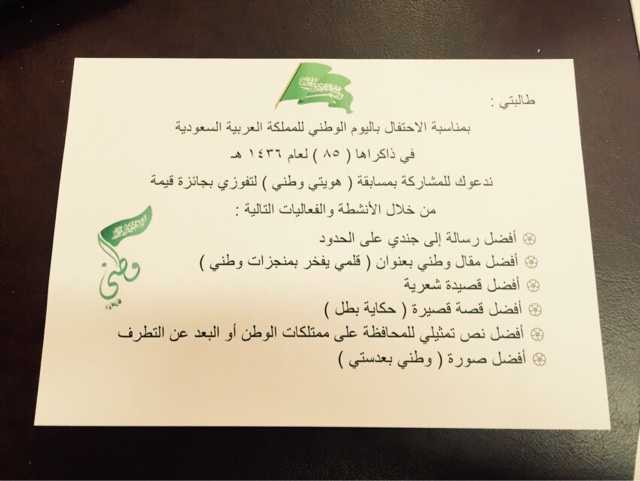 طالبتي :
بمناسبة الاحتفال باليوم الوطني للمملكة العربية السعودية
في ذاكراها ( ٨٥ ) لعام ١٤٣٦ هـ
ندعوك للمشاركة بمسابقة ( هويتي وطني ) لتفوزي بجائزة قيمة
من خلال الأنشطة والفعاليات التالية :
أفضل رسالة إلى جندي على الحدود
أفضل مقال وطني بعنوان ( قلمي يفخر بمنجزات وطني )
أفضل قصيدة شعرية
أفضل قصة قصيرة ( حكاية بطل )
أفضل نص تمثيلي للمحافظة على ممتلكات الوطن أو البعد عن التطرف
أفضل صورة ( وطني بعدستي )
وطني